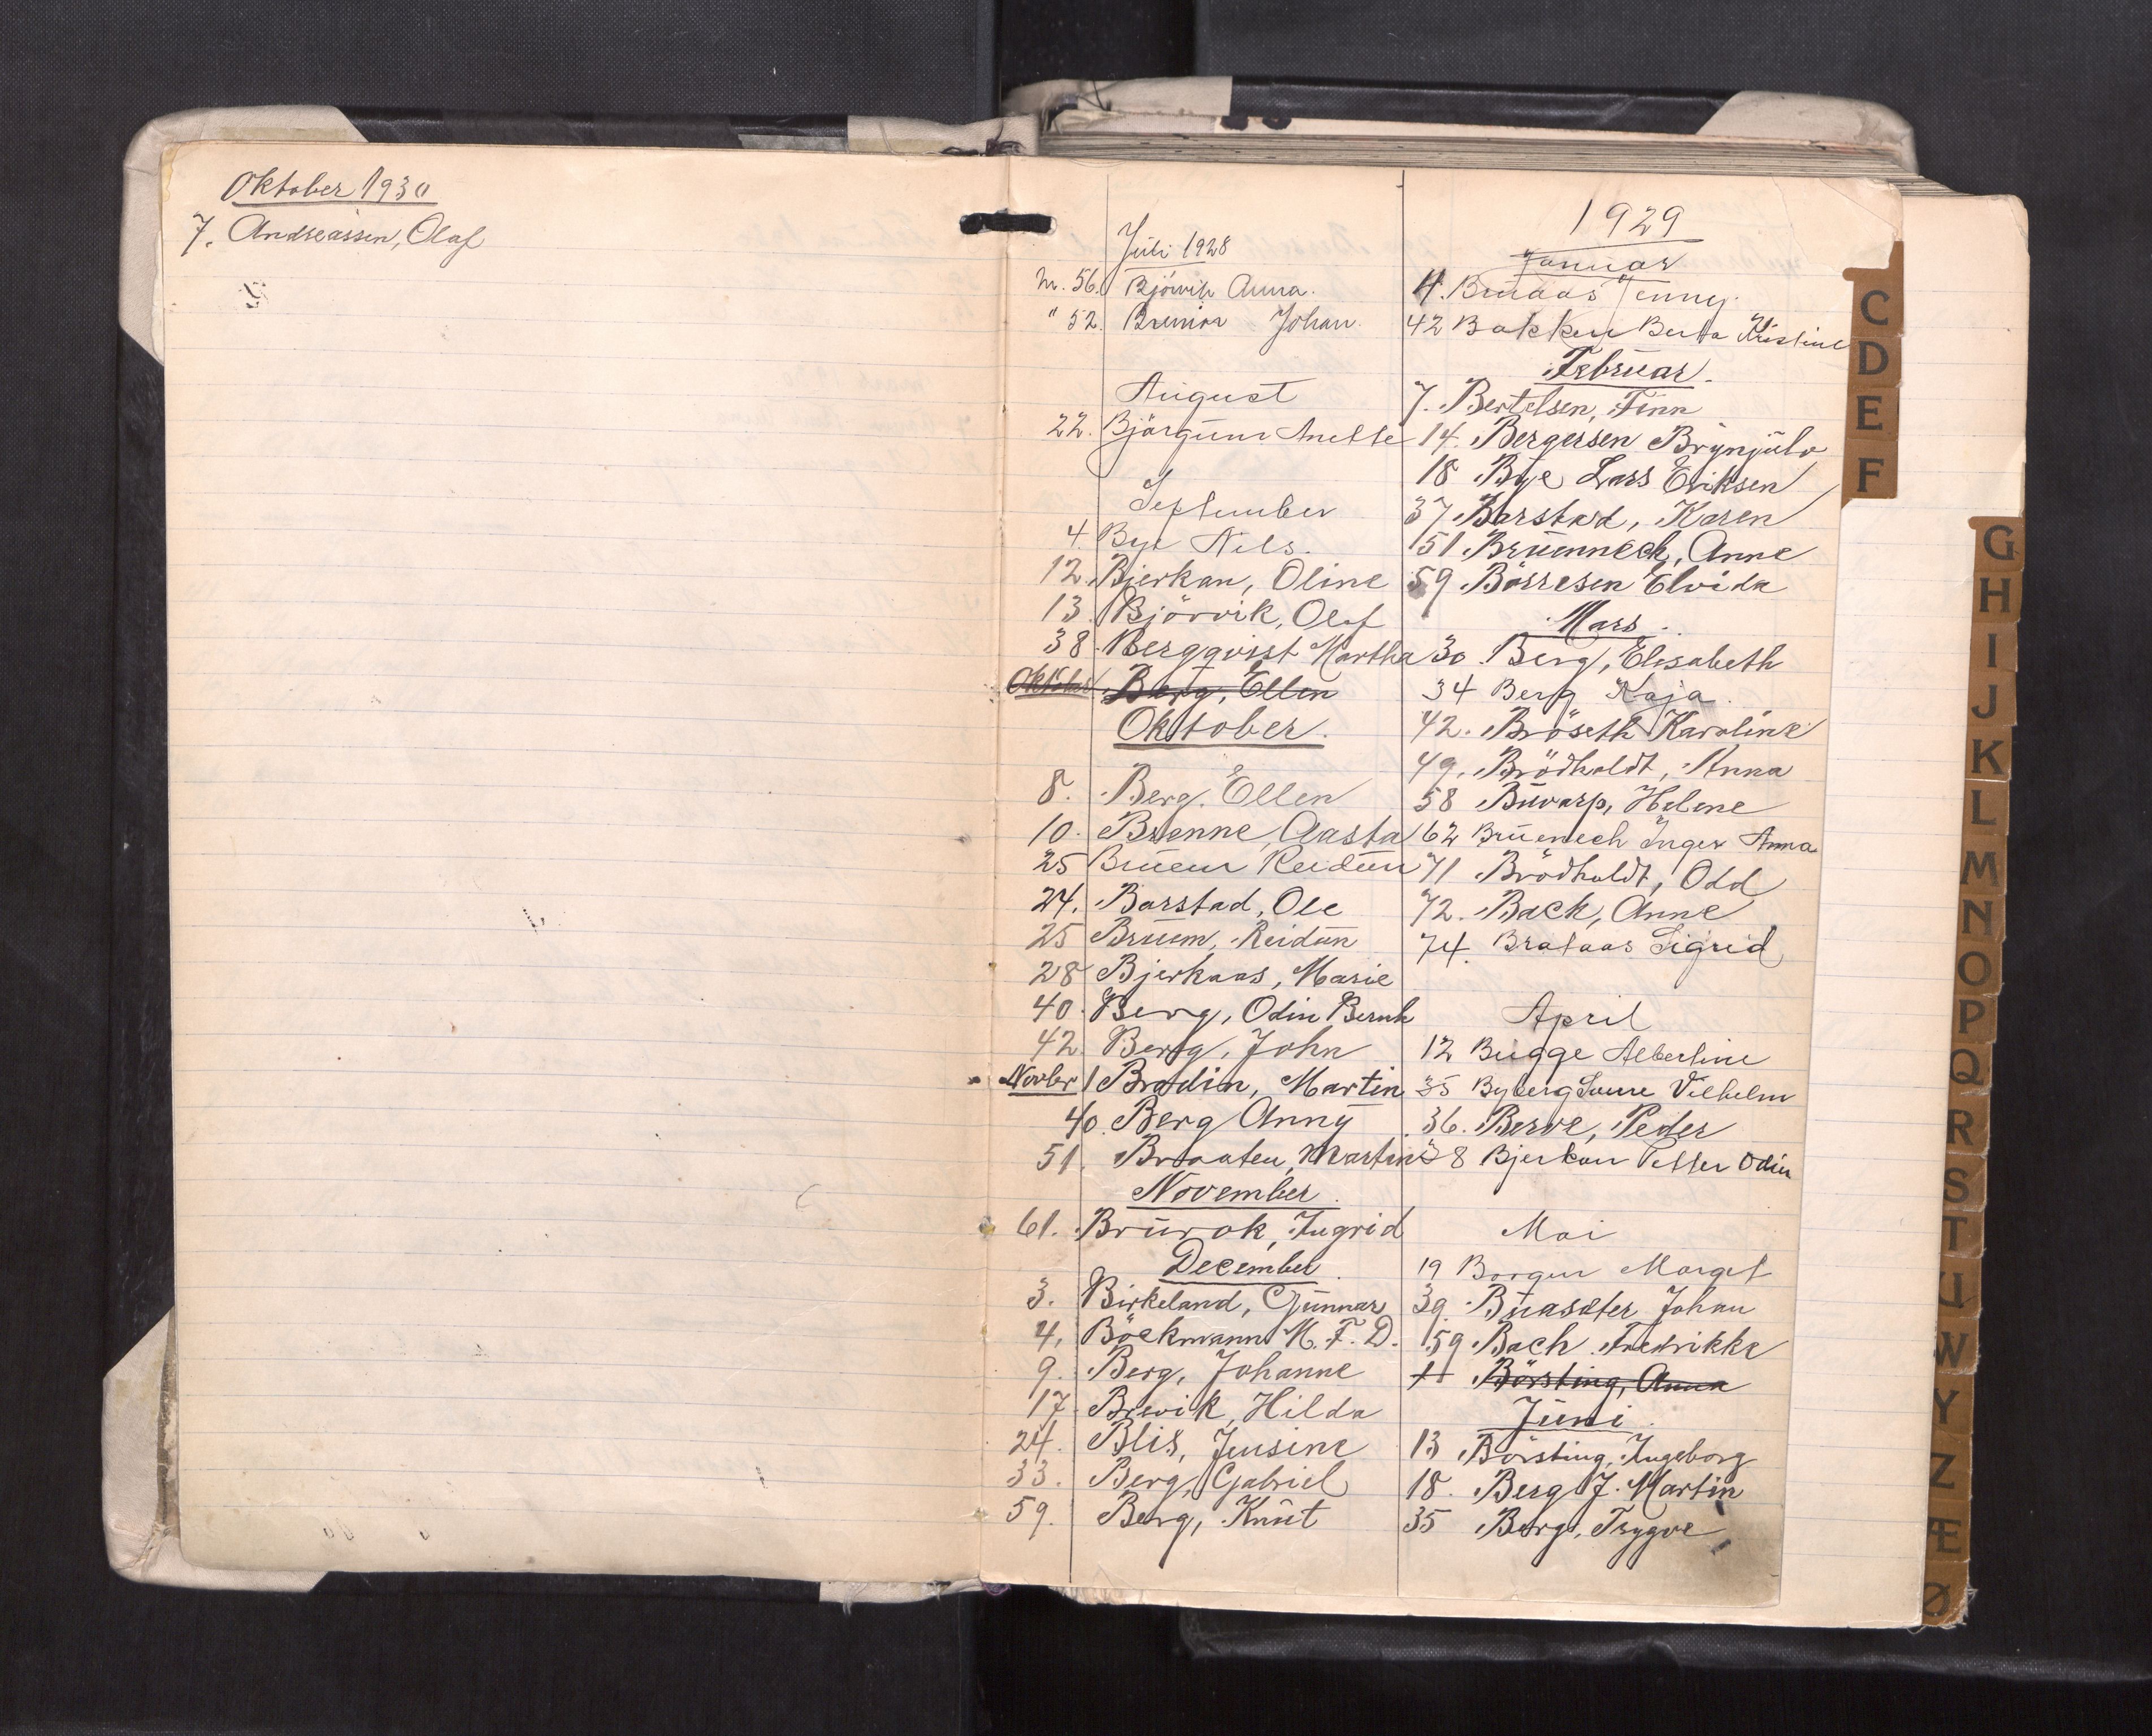 Oktober 1930
7. Andreassen, Olaf
Juli 1928
Nr. 56. Bjørvik Anna.
" 52. Johan.
August
22. Björgum Anette
September
4. Bye Nils.
12. Bjerkan, Oline
13. Björvik, Olaf
38. Bergqvist Martha
Oktober Berg, Ellen
Oktober.
8. Berg. Ellen
10. Brenne, Aasta
25 Reidun
24. Barstad, Ole
25 Bruem, Reidun
28 Bjerkaas, Marie
40. Berg, Odin Bernh
42 Berg, John
Novbr 1 Brodin, Martin
40. Berg Anny
51. Braaten, Martin
November.
61. Brurok, Ingrid
December.
3. Birkeland, Gunnar
4. Böckmann M. F. D.
9. Berg, Johanne
17 Brevik, Hilda
24. Blix, Jensine
33. Berg, Gabriel
59. Berg, Knut
1929
Januar
4. Bruaas Jenny.
42 Bakken Berta Kristine
Februar.
7. Bertelsen, Finn
14. Bergersen Brynjulv
18 Bye Lars Eriksen
37 Barstad, Karen
51 Bruenneck, Anne
59. Börresen Elvida
Mars.
30. Berg, Elisabeth
34 Berg Kaja
42. Bröseth Karoline
49. Brödholdt, Anna
58 Buvarp, Helene
62 Bruenech Inger Anna
71 Brödholdt, Odd
72. Back, Anne
74. Brataas Sigrid
April
12 Bugge Albertine
35 Byberg Vilhelm
36. Berve, Peder
38 Bjerkan Petter Odin
Mai
19 Borgen Margit
39. Johan
59. Bach Fredrikke
Börsting, Anna
Juni.
13 Börsting, Ingeborg
18. Berg J. Martin
35 Berg, Trygve
C
D
E
F
G
H
I
J
K
L
M
N
O
P
Q
R
S
T
U
W
Y
Z
Æ
Ø